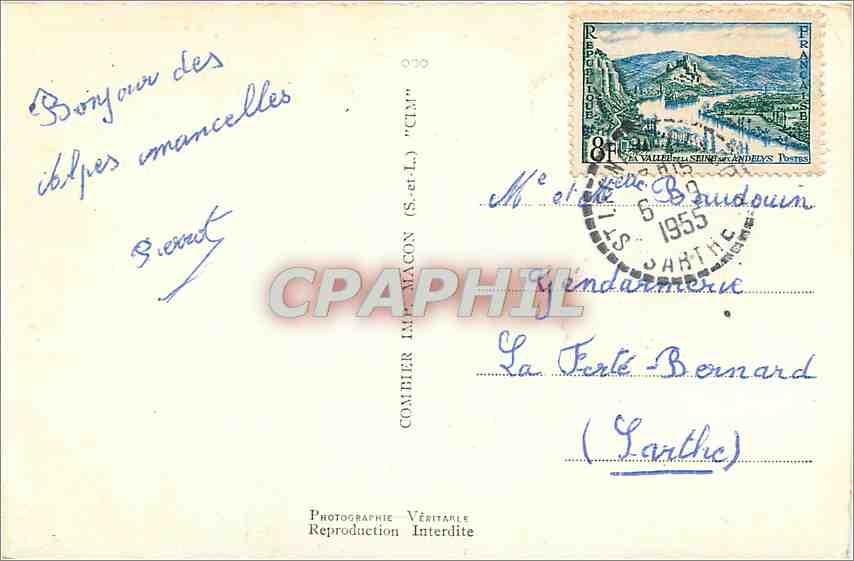 Bonjour des
Alpes mancelles
Pierrot
COMBIER IMP. MACON (S.-et-L.) "CIM"
REPUBLIQUE
FRANCAISE
8F
LA VALLEE DE LA SEINE AUX ANDELYS POSTES
6 -9
1955
SARTHE
Mr et Mme Baudouin
Gendarmerie
La Ferté-Bernard
(Sarthe)
CPAPHIL
PHOTOGRAPHIE VÉRITABLE
Reproduction Interdite